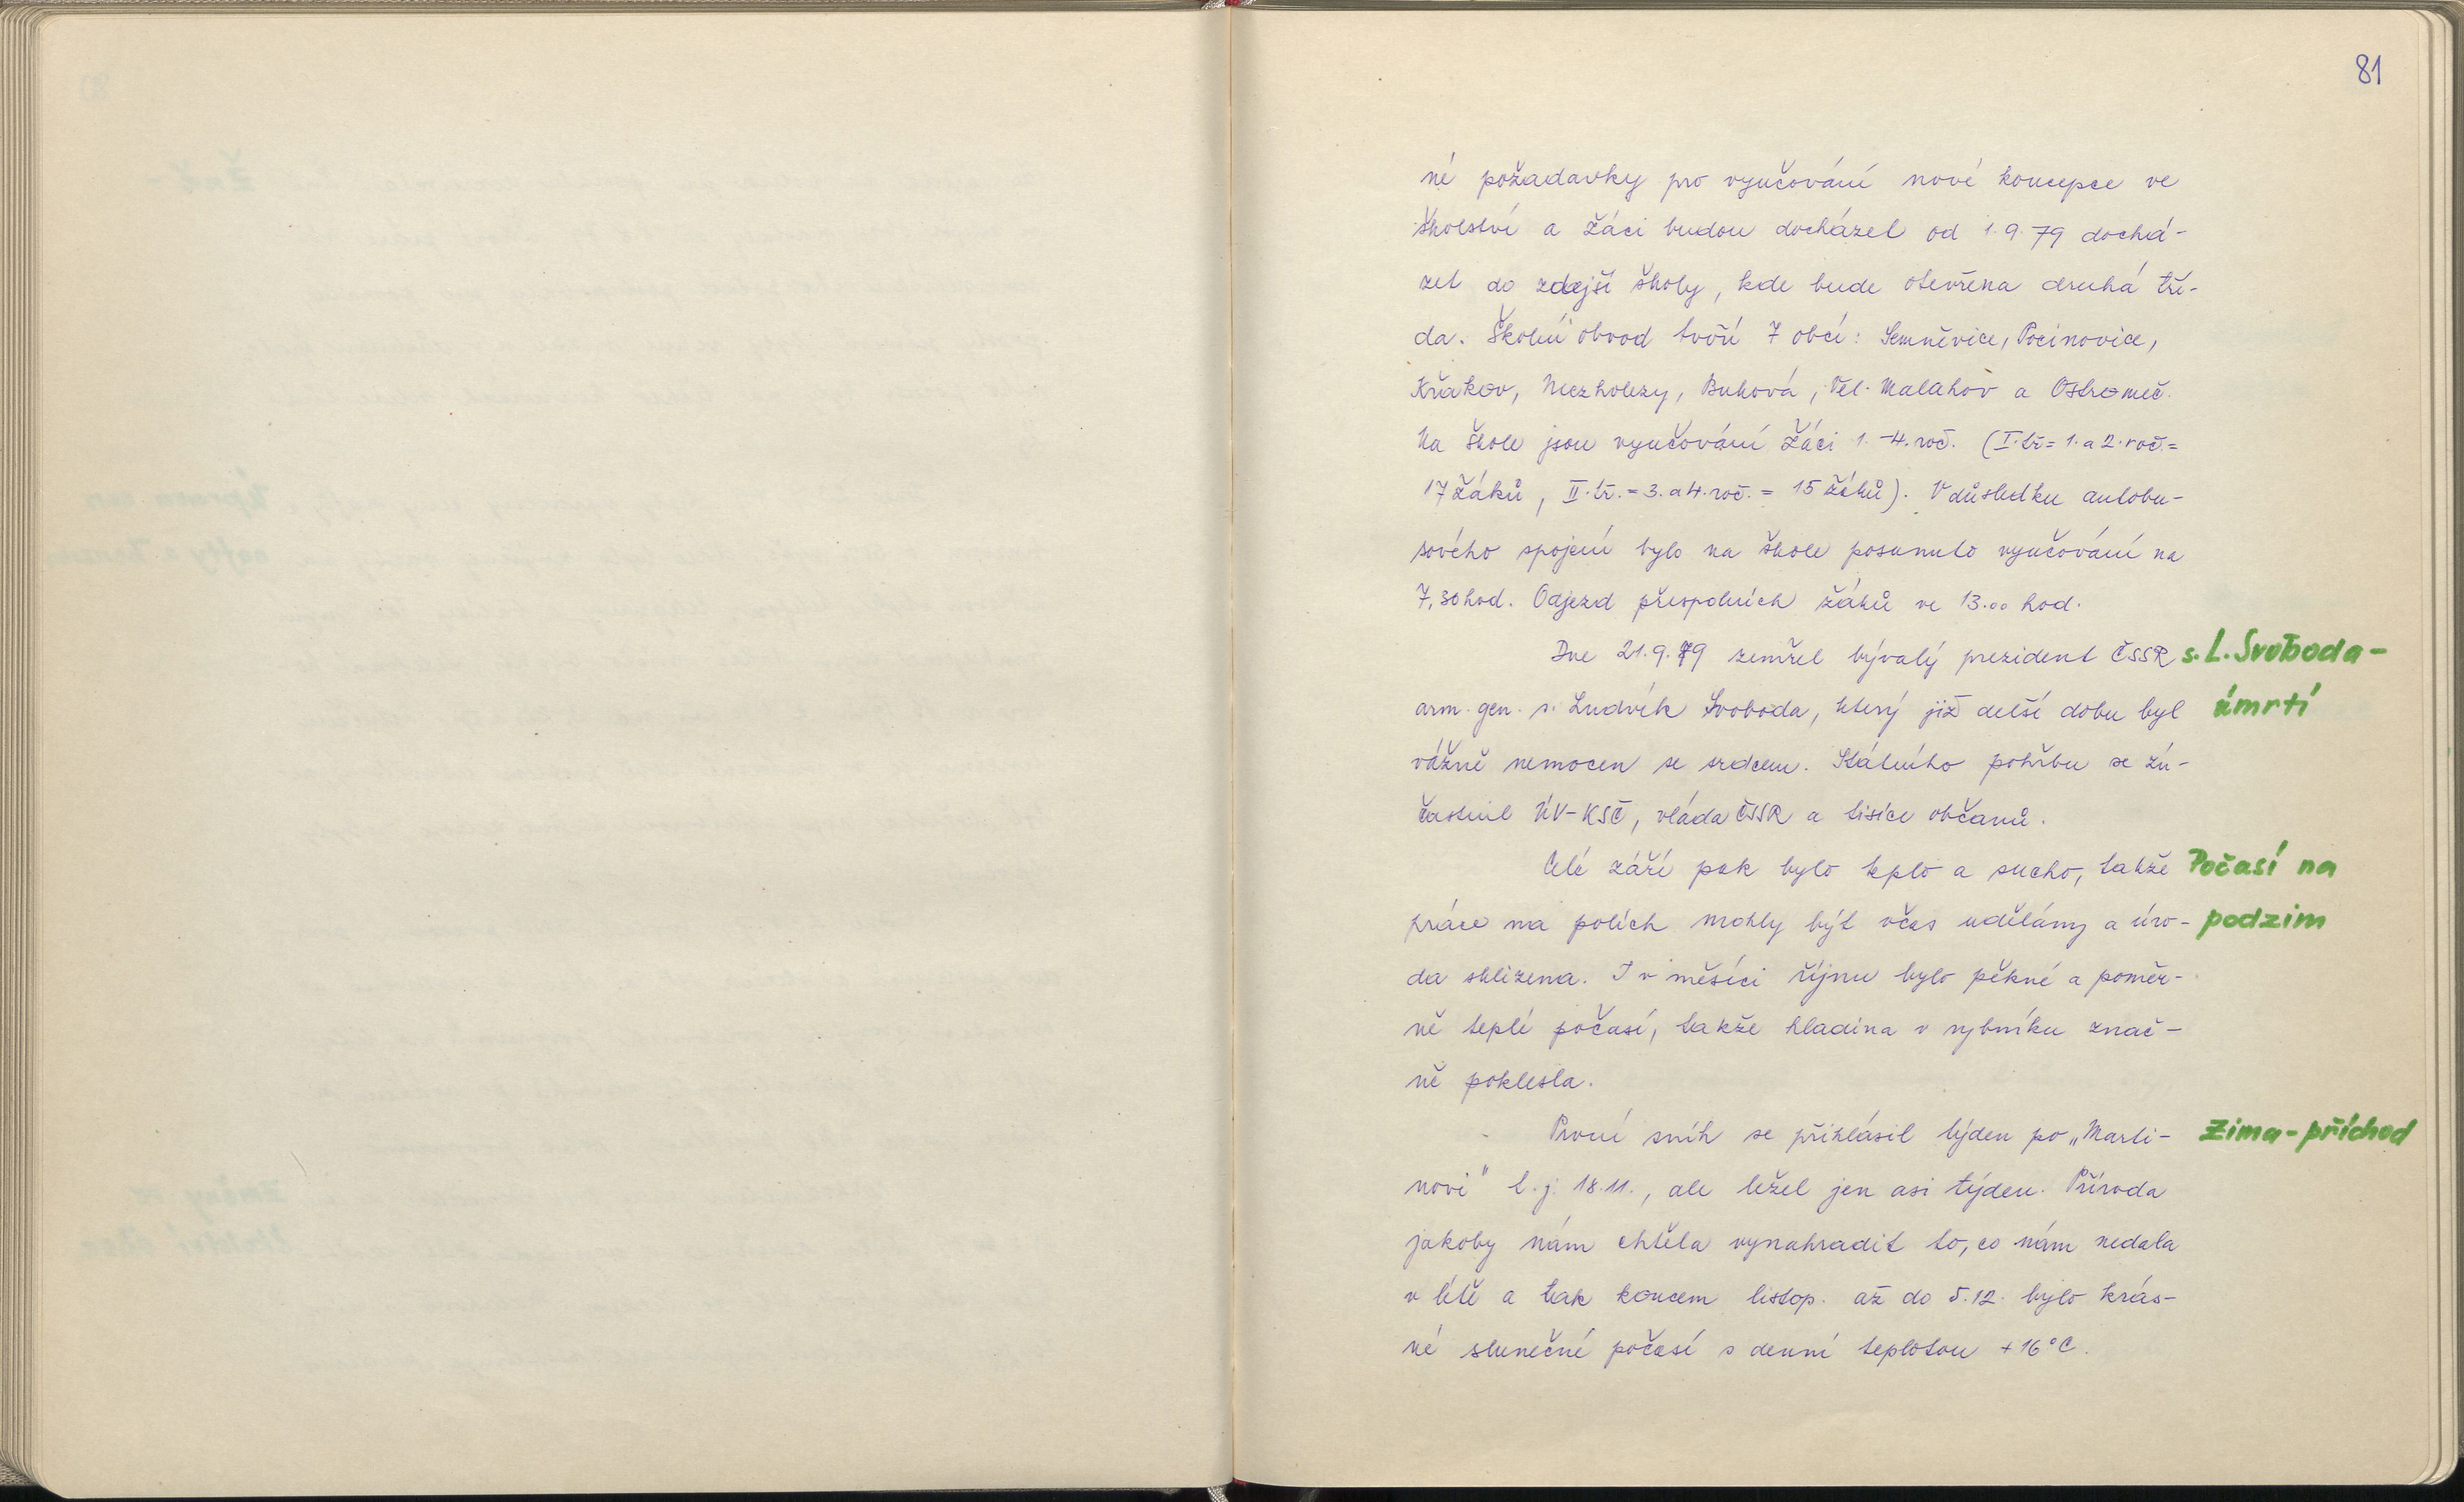 81
né požadavky pro vyučování nové koncepce ve
školství a žáci budou docházel od 1.9.79 dochá-
zet do zdejší školy, kde bude otevřena druhá tří-
da. Školní obvod tvoří 7 obcí: Semněvice, Pocinovice,
Křakov, Mezholezy, Buková, Vel. Malahov a Ostromeč.
Na škole jsou vyučováni žáci 1.-4. roč. (I. tř = 1. a 2. roč. =
17 žáků, II. tř. = 3. a 4. roč. = 15 žáků). V důsledku autobu-
sového spojení bylo na škole posunuto vyučování na
7,30 hod. Odjezd přespolních žáků ve 13.00 hod.
Dne 21.9.79 zemřel bývalý prezident ČSSR s. L. Svoboda-
arm. gen. s. Ludvík Svoboda, který již delší dobu byl úmrtí
vážně nemocen se srdcem. Státního pohřbu se zú-
častnil ÚV-KSČ, vláda ČSSR a tisíce občanů.
Celé září pak bylo teplo a sucho, takže Počasí na
práce na polích mohly být včas udělány a úro- podzim
da sklizena. I v měsíci říjnu bylo pěkné a poměr-
ně teplé počasí, takže hladina v rybníku znač-
ně poklesla.
První sníh se přihlásil týden po „Marti- Zima-příchod
novi" t.j. 18.11., ale ležel jen asi týden. Příroda
jakoby nám chtěla vynahradit to, co nám nedala
v létě a tak koncem listop. až do 5.12. bylo krás-
né slunečné počasí s denní teplotou +16°C.